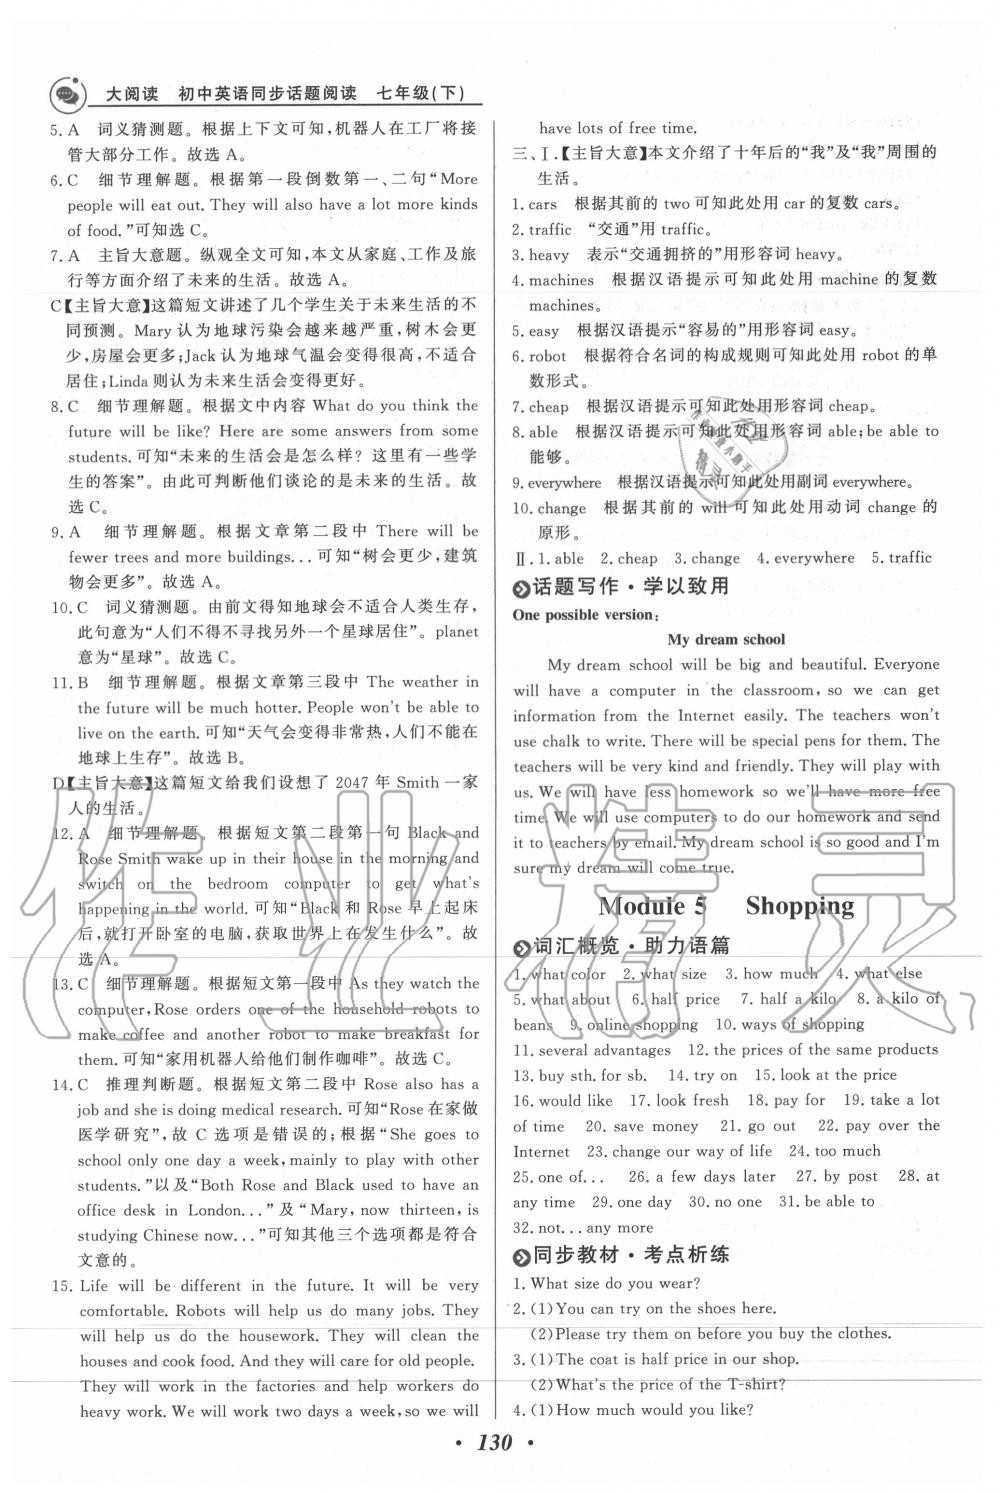 大阅读 初中英语同步话题阅读 七年级(下)
5. A 词义猜测题。根据上下文可知,机器人在工厂将接
管大部分工作。故选 A。
6. C 细节理解题。根据第一段倒数第一、二句“More
people will eat out. They will also have a lot more kinds
of food.”可知选 C。
7. A 主旨大意题。纵观全文可知,本文从家庭、工作及旅
行等方面介绍了未来的生活。故选 A。
C【主旨大意】这篇短文讲述了几个学生关于未来生活的不
同预测。Mary 认为地球污染会越来越严重,树木会更
少,房屋会更多;Jack 认为地球气温会变得很高,不适合
居住;Linda 则认为未来生活会变得更好。
8. C 细节理解题。根据文中内容 What do you think the
future will be like? Here are some answers from some
students. 可知“未来的生活会是怎么样? 这里有一些学
生的答案”。由此可判断他们谈论的是未来的生活。故
选 C。
9. A 细节理解题。根据文章第二段中 There will be
fewer trees and more buildings... 可知“树会更少,建筑
物会更多”。故选 A。
10. C 词义猜测题。由前文得知地球会不适合人类生存,
此句意为“人们不得不寻找另外一个星球居住”。planet
意为“星球”。故选 C。
11. B 细节理解题。根据文章第三段中 The weather in
the future will be much hotter. People won't be able to
live on the earth. 可知“天气会变得非常热,人们不能在
地球上生存”。故选 B。
D【主旨大意】这篇短文给我们设想了 2047 年 Smith 一家
人的生活。
12. A 细节理解题。根据短文第二段第一句 Black and
Rose Smith wake up in their house in the morning and
switch on the bedroom computer to get what's
happening in the world. 可知“Black 和 Rose 早上起床
后,就打开卧室的电脑,获取世界上在发生什么”。故
选 A。
13. C 细节理解题。根据短文第一段中 As they watch the
computer, Rose orders one of the household robots to
make coffee and another robot to make breakfast for
them. 可知“家用机器人给他们制作咖啡”。故选 C。
14. C 推理判断题。根据短文第二段中 Rose also has a
job and she is doing medical research. 可知“Rose 在家做
医学研究”,故 C 选项是错误的;根据“She goes to
school only one day a week, mainly to play with other
students.”以及“Both Rose and Black used to have an
office desk in London...”及“Mary, now thirteen, is
studying Chinese now...”可知其他三个选项都是符合
文意的。
15. Life will be different in the future. It will be very
comfortable. Robots will help us do many jobs. They
will help us do the housework. They will clean the
houses and cook food. And they will care for old people.
They will work in the factories and help workers do
heavy work. We will work two days a week, so we will
have lots of free time.
三、Ⅰ.【主旨大意】本文介绍了十年后的“我”及“我”周围的
生活。
1. cars 根据其前的 two 可知此处用 car 的复数 cars。
2. traffic “交通”用 traffic。
3. heavy 表示“交通拥挤的”用形容词 heavy。
4. machines 根据汉语提示可知此处用 machine 的复数
machines。
5. easy 根据汉语提示“容易的”用形容词 easy。
6. robot 根据符合名词的构成规则可知此处用 robot 的单
数形式。
7. cheap 根据汉语提示可知此处用形容词 cheap。
8. able 根据汉语提示可知此处用形容词 able;be able to
能够。
9. everywhere 根据汉语提示可知此处用副词 everywhere。
10. change 根据其前的 will 可知此处用动词 change 的
原形。
Ⅱ. 1. able 2. cheap 3. change 4. everywhere 5. traffic
话题写作·学以致用
One possible version:
My dream school
My dream school will be big and beautiful. Everyone
will have a computer in the classroom, so we can get
information from the Internet easily. The teachers won't
use chalk to write. There will be special pens for them. The
teachers will be very kind and friendly. They will play with
us. We will have less homework so we'll have more free
time. We will use computers to do our homework and send
it to teachers by email. My dream school is so good and I'm
sure my dream will come true.
Module 5 Shopping
词汇概览·助力语篇
1. what color 2. what size 3. how much 4. what else
5. what about 6. half price 7. half a kilo 8. a kilo of
beans 9. online shopping 10. ways of shopping
11. several advantages 12. the prices of the same products
13. buy sth. for sb. 14. try on 15. look at the price
16. would like 17. look fresh 18. pay for 19. take a lot
of time 20. save money 21. go out 22. pay over the
Internet 23. change our way of life 24. too much
25. one of... 26. a few days later 27. by post 28. at
any time 29. one day 30. no one 31. be able to
32. not... any more
同步教材·考点析练
1. What size do you wear?
2. (1)You can try on the shoes here.
(2)Please try them on before you buy the clothes.
3. (1)The coat is half price in our shop.
(2)What's the price of the T-shirt?
4. (1)How much would you like?
· 130 ·
作业精灵